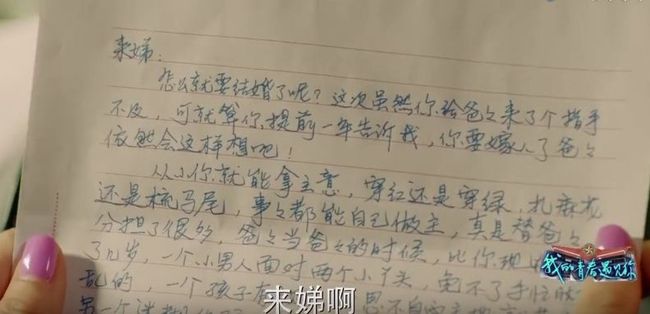 来娣：
怎么就要结婚了呢？这次虽然你给爸爸来了个措手
不及，可就算你提前一年告诉我，你要嫁人了爸爸
依然会这样想吧！
从小你就能拿主意，穿红还是穿绿，扎麻花
还是梳马尾，事事都能自己做主，真是替爸爸
分担了很多，爸爸当爸爸的时候，比你现
了几岁，一个小男人面对两个小丫头，免不了手忙脚
乱的，一个孩子
另一个
我的青春遇见你
来娣啊